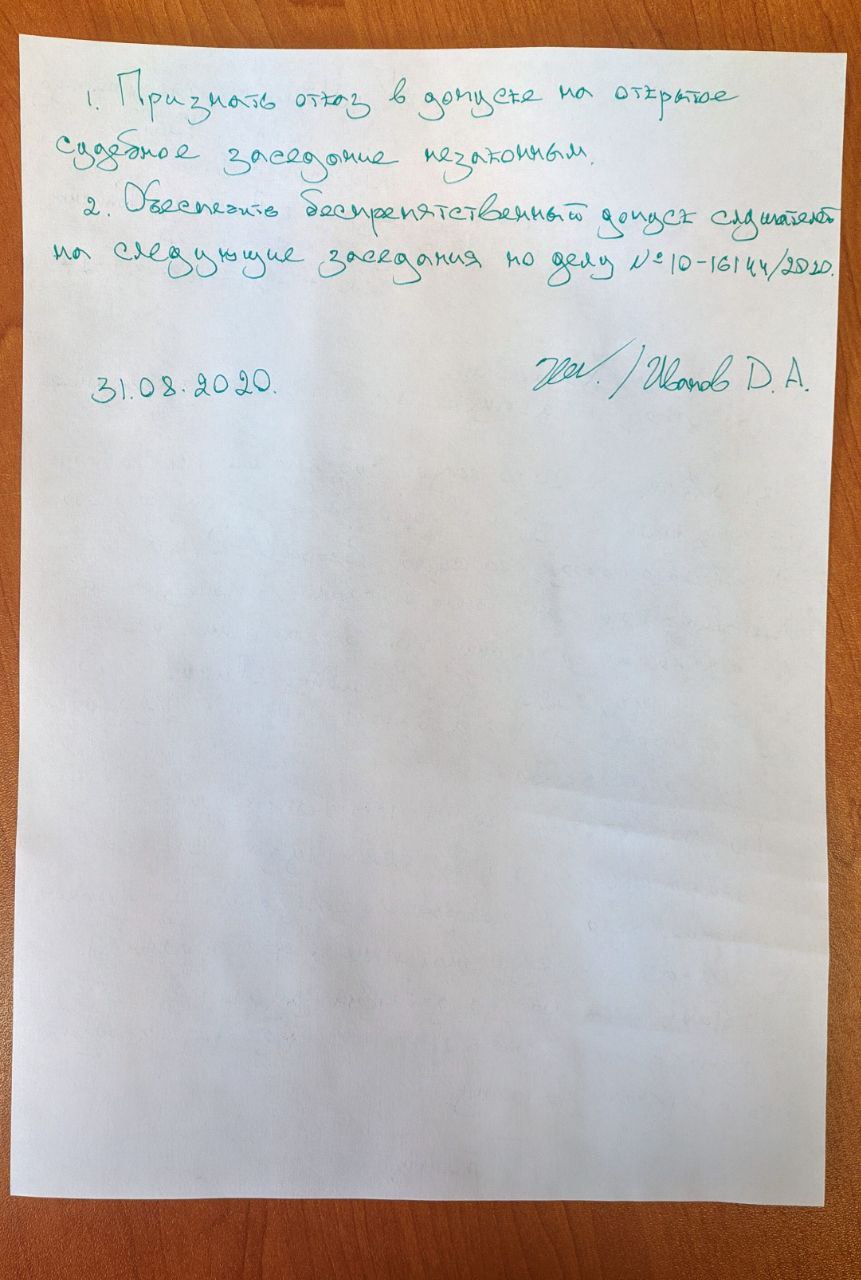 1. Признать отказ в допуске на открытое
судебное заседание незаконным.
2. Обеспечить беспрепятственный допуск слушателей
на следующие заседания по делу №10-16144/2020.
31.08.2020. / Иванов Д. А.